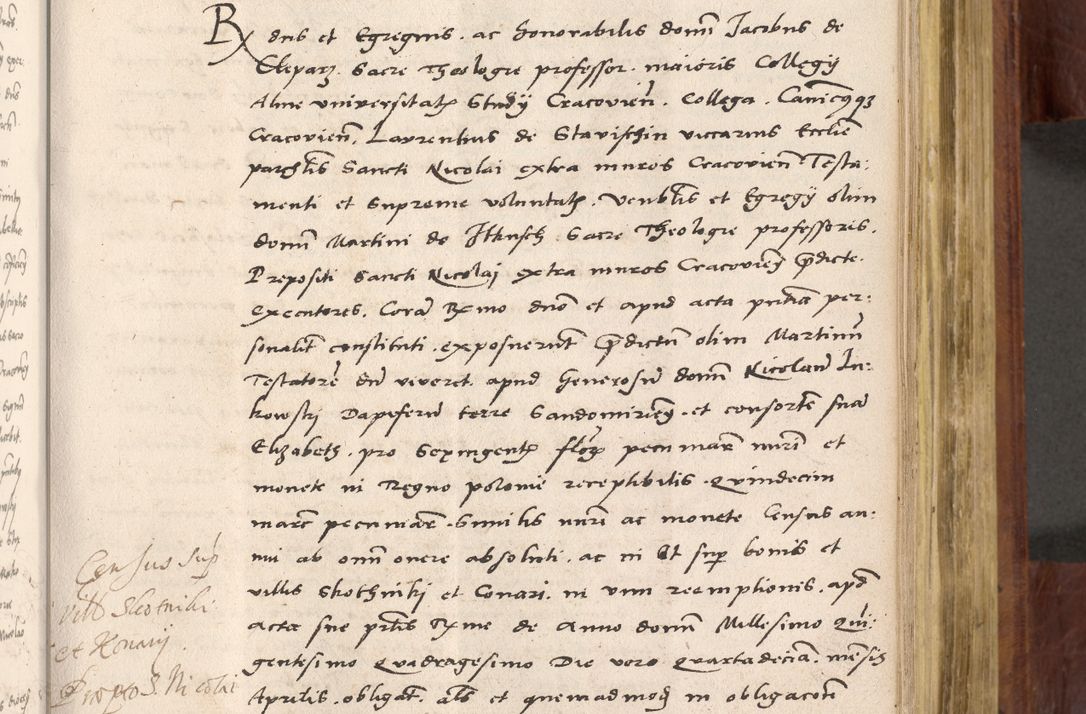 Rx dns et Egregius . ac honorabilis domi Jacobus de
Cleparz . Sacre Theologie professor . maioris Collegij
Alme universitatis Studij Cracovien . Collega . Canicusqz
Cracovien . Laurentius de Stavischin viccarius Ecclie
parchlis Sancti Nicolai extra muros Cracovien Testa:
menti et supreme voluntatis . Venblis et Egregij olim
domi Martini de Ilkusch . Sacre Theologie professoris .
Prepositi Sancti Nicolaj extra muros Cracovien pdicte .
executores . Cora Rxmo dno et apud acta pntia per:
sonalit constituti . exposuerunt pdictu olim Martinu
Testatore du viveret . apud Generosu domi Nicolau Iu:
kowskj Dapiferu terre Sandomirien . et consorte sua
Elizabeth . pro Sexingentis flor pecuniar nuri et
monete in Regno polonie receptibilis . Quindecim
marc pecuniar . Similis nuri ac monete Census an:
nui ab omi onere absoluti . ac in et sup bonis et
villis Skothniki et Conari . in vim reemptionis . apd
acta sue prtis Rxme de Anno domi Millesimo Qui:
gentesimo Quadragesimo Die vero Quarta decia . mensis
Aprilis . obligat . als et quemadmod in obligacon
Census sup
vill Skotniki
et Konarij .
S. Nicolai